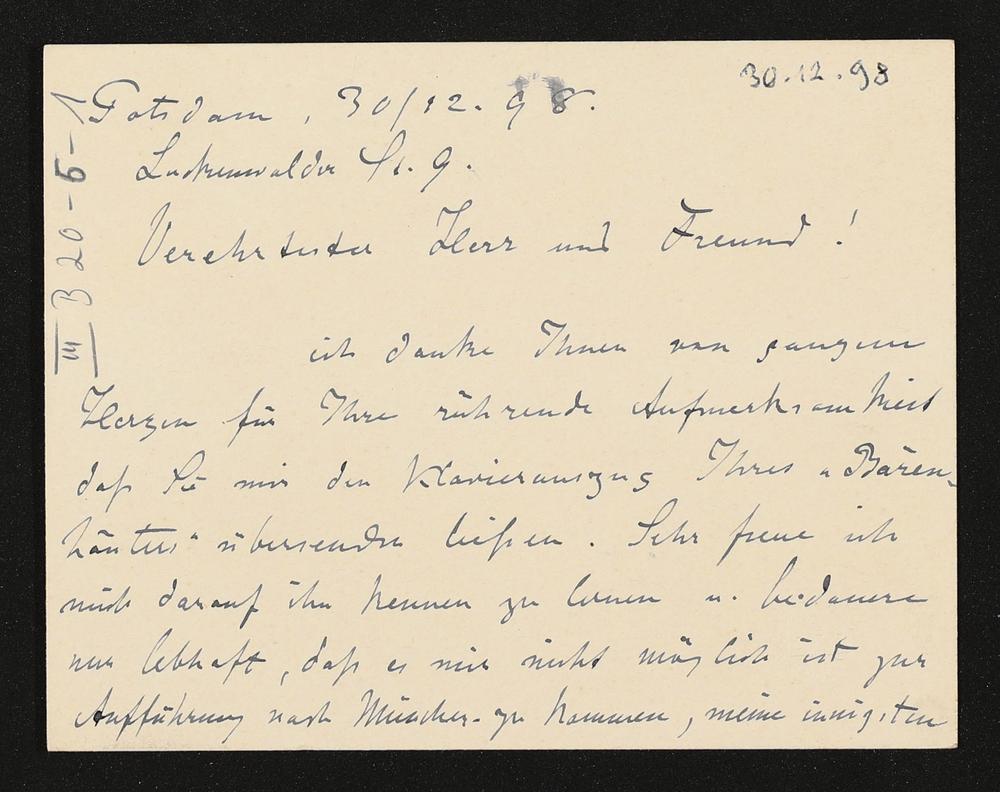 30.12.98
Potsdam, 30/12. 98.
Luckenwalder St. 9.
III B 20-6-1
Verehrtester Herr und Freund!
ich danke Ihnen von ganzem
Herzen für Ihre rührende Aufmerksamkeit
daß Sie mir den Klavierauszug Ihres „Bären-
häuters" übersenden ließen. Sehr freue ich
mich darauf ihn kennen zu lernen u. bedauere
nur lebhaft, daß es mir nicht möglich ist zur
Aufführung nach München zu kommen, meine innigsten